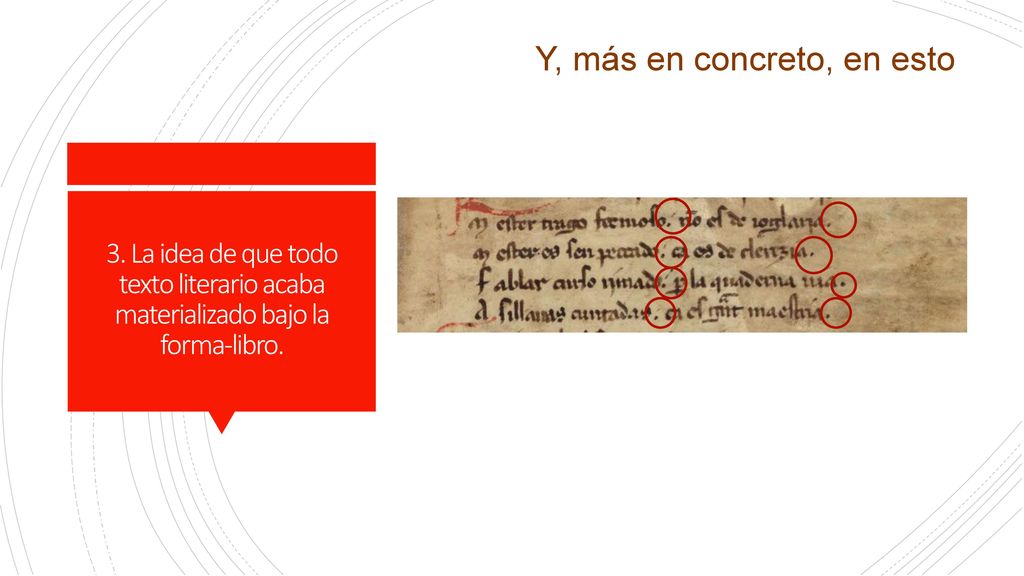 Y, más en concreto, en esto
3. La idea de que todo
texto literario acaba
materializado bajo la
forma-libro.
M ester trago fermoso. nõ es de ioglaria.
M ester es sen peccado. ca es de clerezia.
F ablar curso rimado. p la quaderna uia.
A sillauas cuntadas. ca es grãt maestria.